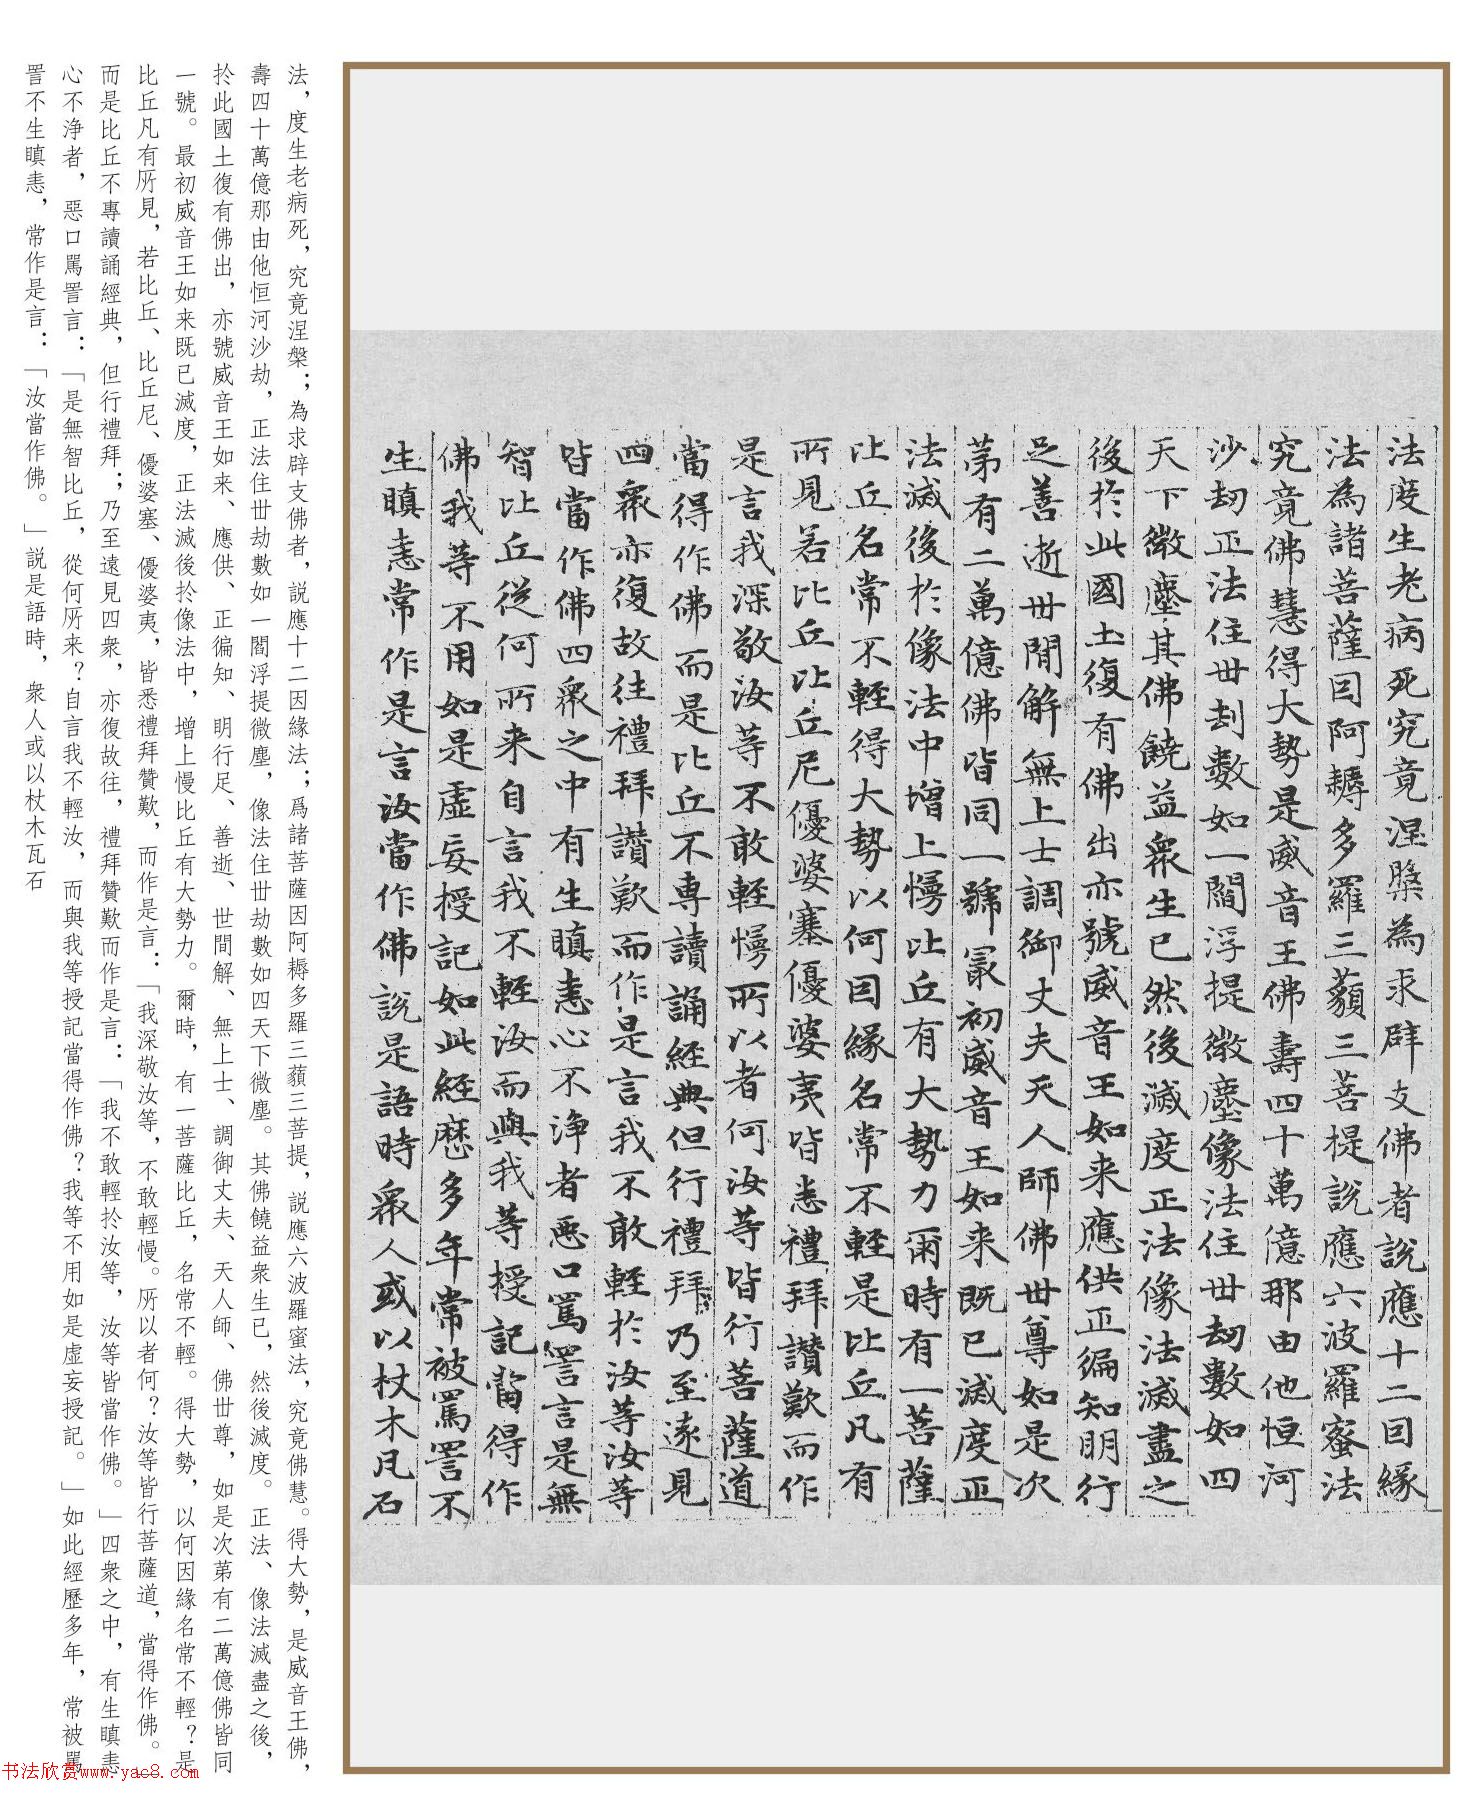 法度生老病死究竟涅槃為求辟支佛者說應十二因緣
法為諸菩薩因阿耨多羅三藐三菩提說應六波羅蜜法
究竟佛慧得大勢是威音王佛壽四十萬億那由他恒河
沙劫正法住世劫數如一閻浮提微塵像法住世劫數如四
天下微塵其佛饒益衆生已然後滅度正法像法滅盡之
後於此國土復有佛出亦號威音王如来應供正遍知明行
足善逝世間解無上士調御丈夫天人師佛世尊如是次
第有二萬億佛皆同一號冣初威音王如来既已滅度正
法滅後於像法中增上慢比丘有大勢力爾時有一菩薩
比丘名常不輕得大勢以何因緣名常不輕是比丘凡有
所見若比丘比丘尼優婆塞優婆夷皆悉禮拜讚歎而作
是言我深敬汝等不敢輕慢所以者何汝等皆行菩薩道
當得作佛而是比丘不專讀誦經典但行禮拜乃至遠見
四衆亦復故往禮拜讚歎而作是言我不敢輕於汝等汝等
皆當作佛四衆之中有生瞋恚心不淨者惡口罵詈言是無
智比丘從何所来自言我不輕汝而與我等授記當得作
佛我等不用如是虛妄授記如此經歷多年常被罵詈不
生瞋恚常作是言汝當作佛說是語時衆人或以杖木瓦石
法，度生老病死，究竟涅槃；為求辟支佛者，説應十二因緣法；爲諸菩薩因阿耨多羅三藐三菩提，説應六波羅蜜法，究竟佛慧。得大勢，是威音王佛，
壽四十萬億那由他恒河沙劫，正法住世劫數如一閻浮提微塵，像法住世劫數如四天下微塵。其佛饒益衆生已，然後滅度。正法、像法滅盡之後，
於此國土復有佛出，亦號威音王如来、應供、正徧知、明行足、善逝、世間解、無上士、調御丈夫、天人師、佛世尊，如是次第有二萬億佛皆同
一號。最初威音王如来既已滅度，正法滅後於像法中，增上慢比丘有大勢力。爾時，有一菩薩比丘，名常不輕。得大勢，以何因緣名常不輕？是
比丘凡有所見，若比丘、比丘尼、優婆塞、優婆夷，皆悉禮拜贊歎，而作是言：「我深敬汝等，不敢輕慢。所以者何？汝等皆行菩薩道，當得作佛。
而是比丘不專讀誦經典，但行禮拜；乃至遠見四衆，亦復故往，禮拜贊歎而作是言：「我不敢輕於汝等，汝等皆當作佛。」四衆之中，有生瞋恚
心不浄者，惡口罵詈言：「是無智比丘，從何所来？自言我不輕汝，而與我等授記當得作佛？我等不用如是虛妄授記。」如此經歷多年，常被罵
詈不生瞋恚，常作是言：「汝當作佛。」説是語時，衆人或以杖木瓦石
书法欣赏www.yac8.com